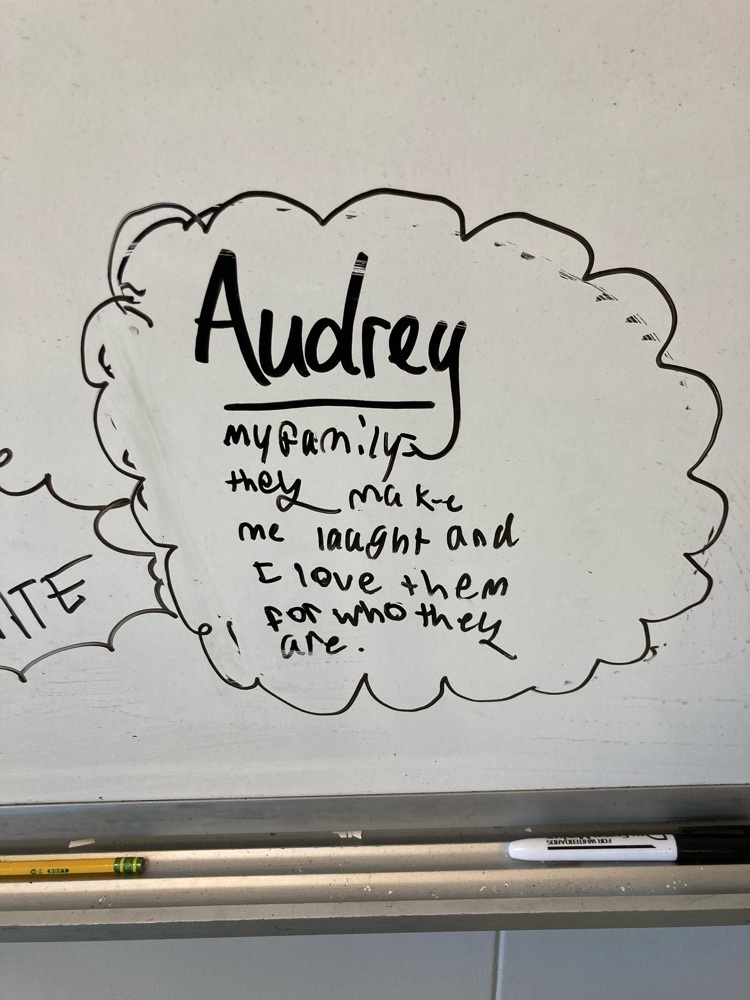 Audrey
my family
they make
me laught and
I love them
for who they
are.
ITE
SOFT
FOR WHITEBOARDS